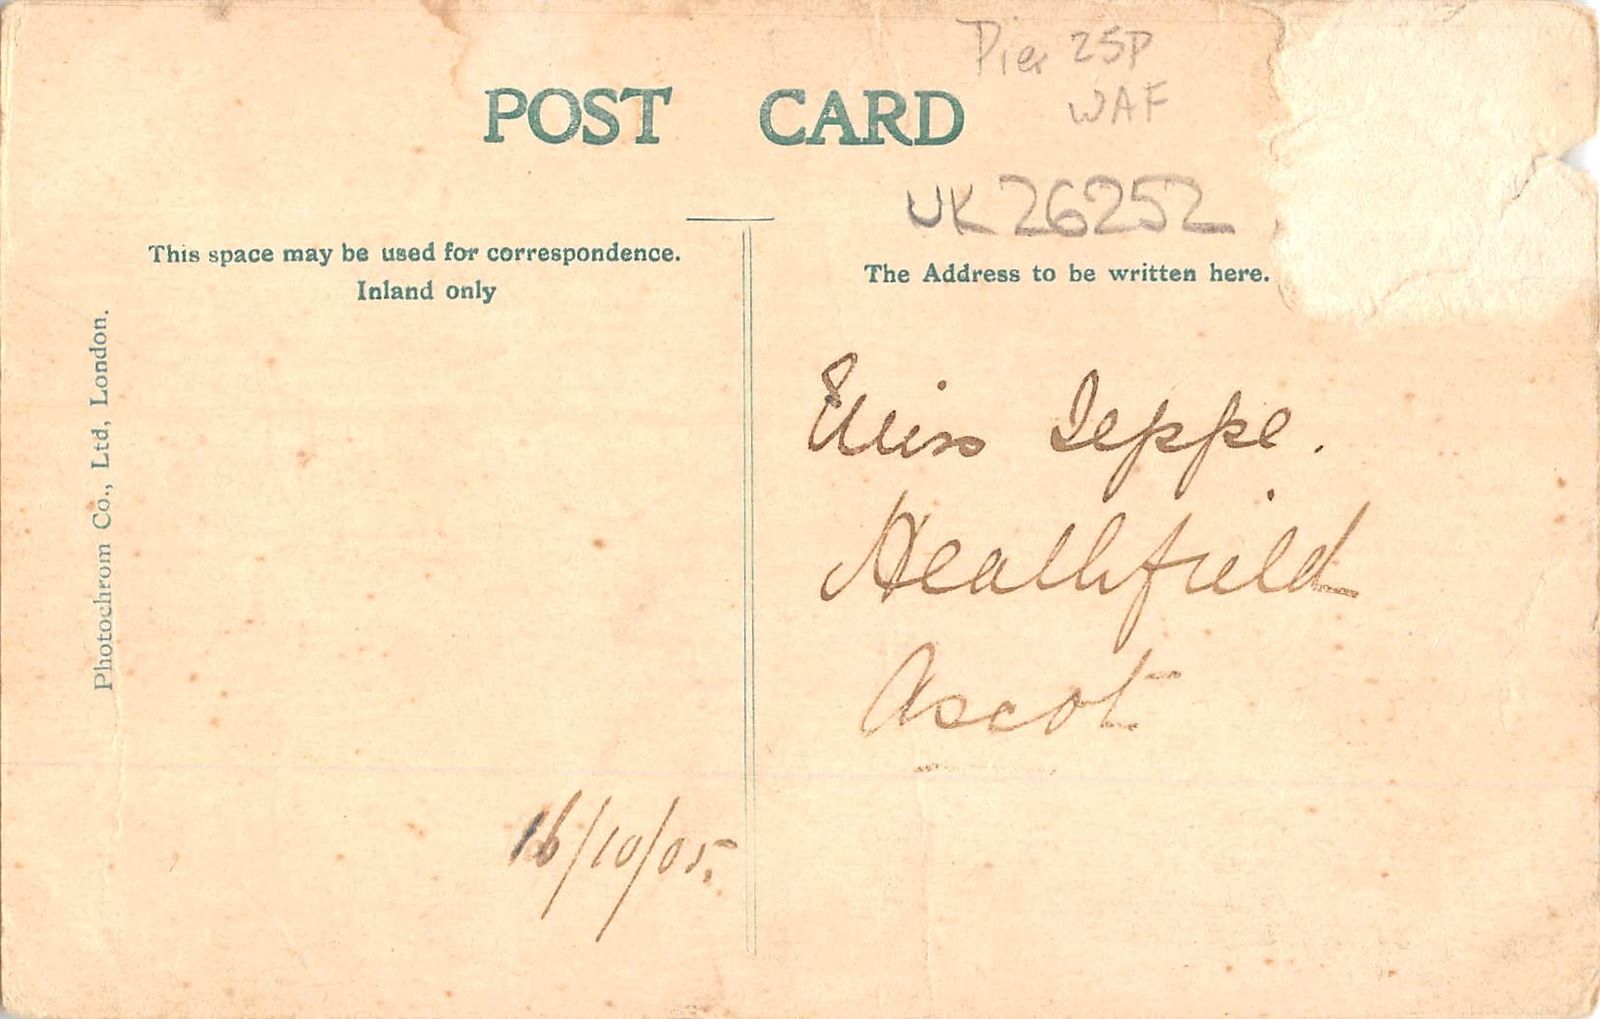 Pier 25P
WAF
POST CARD
UK 26252
This space may be used for correspondence.
Inland only
The Address to be written here.
Photochrom Co., Ltd, London.
Miss Jeppe.
Heathfield
Ascot
16/10/05.